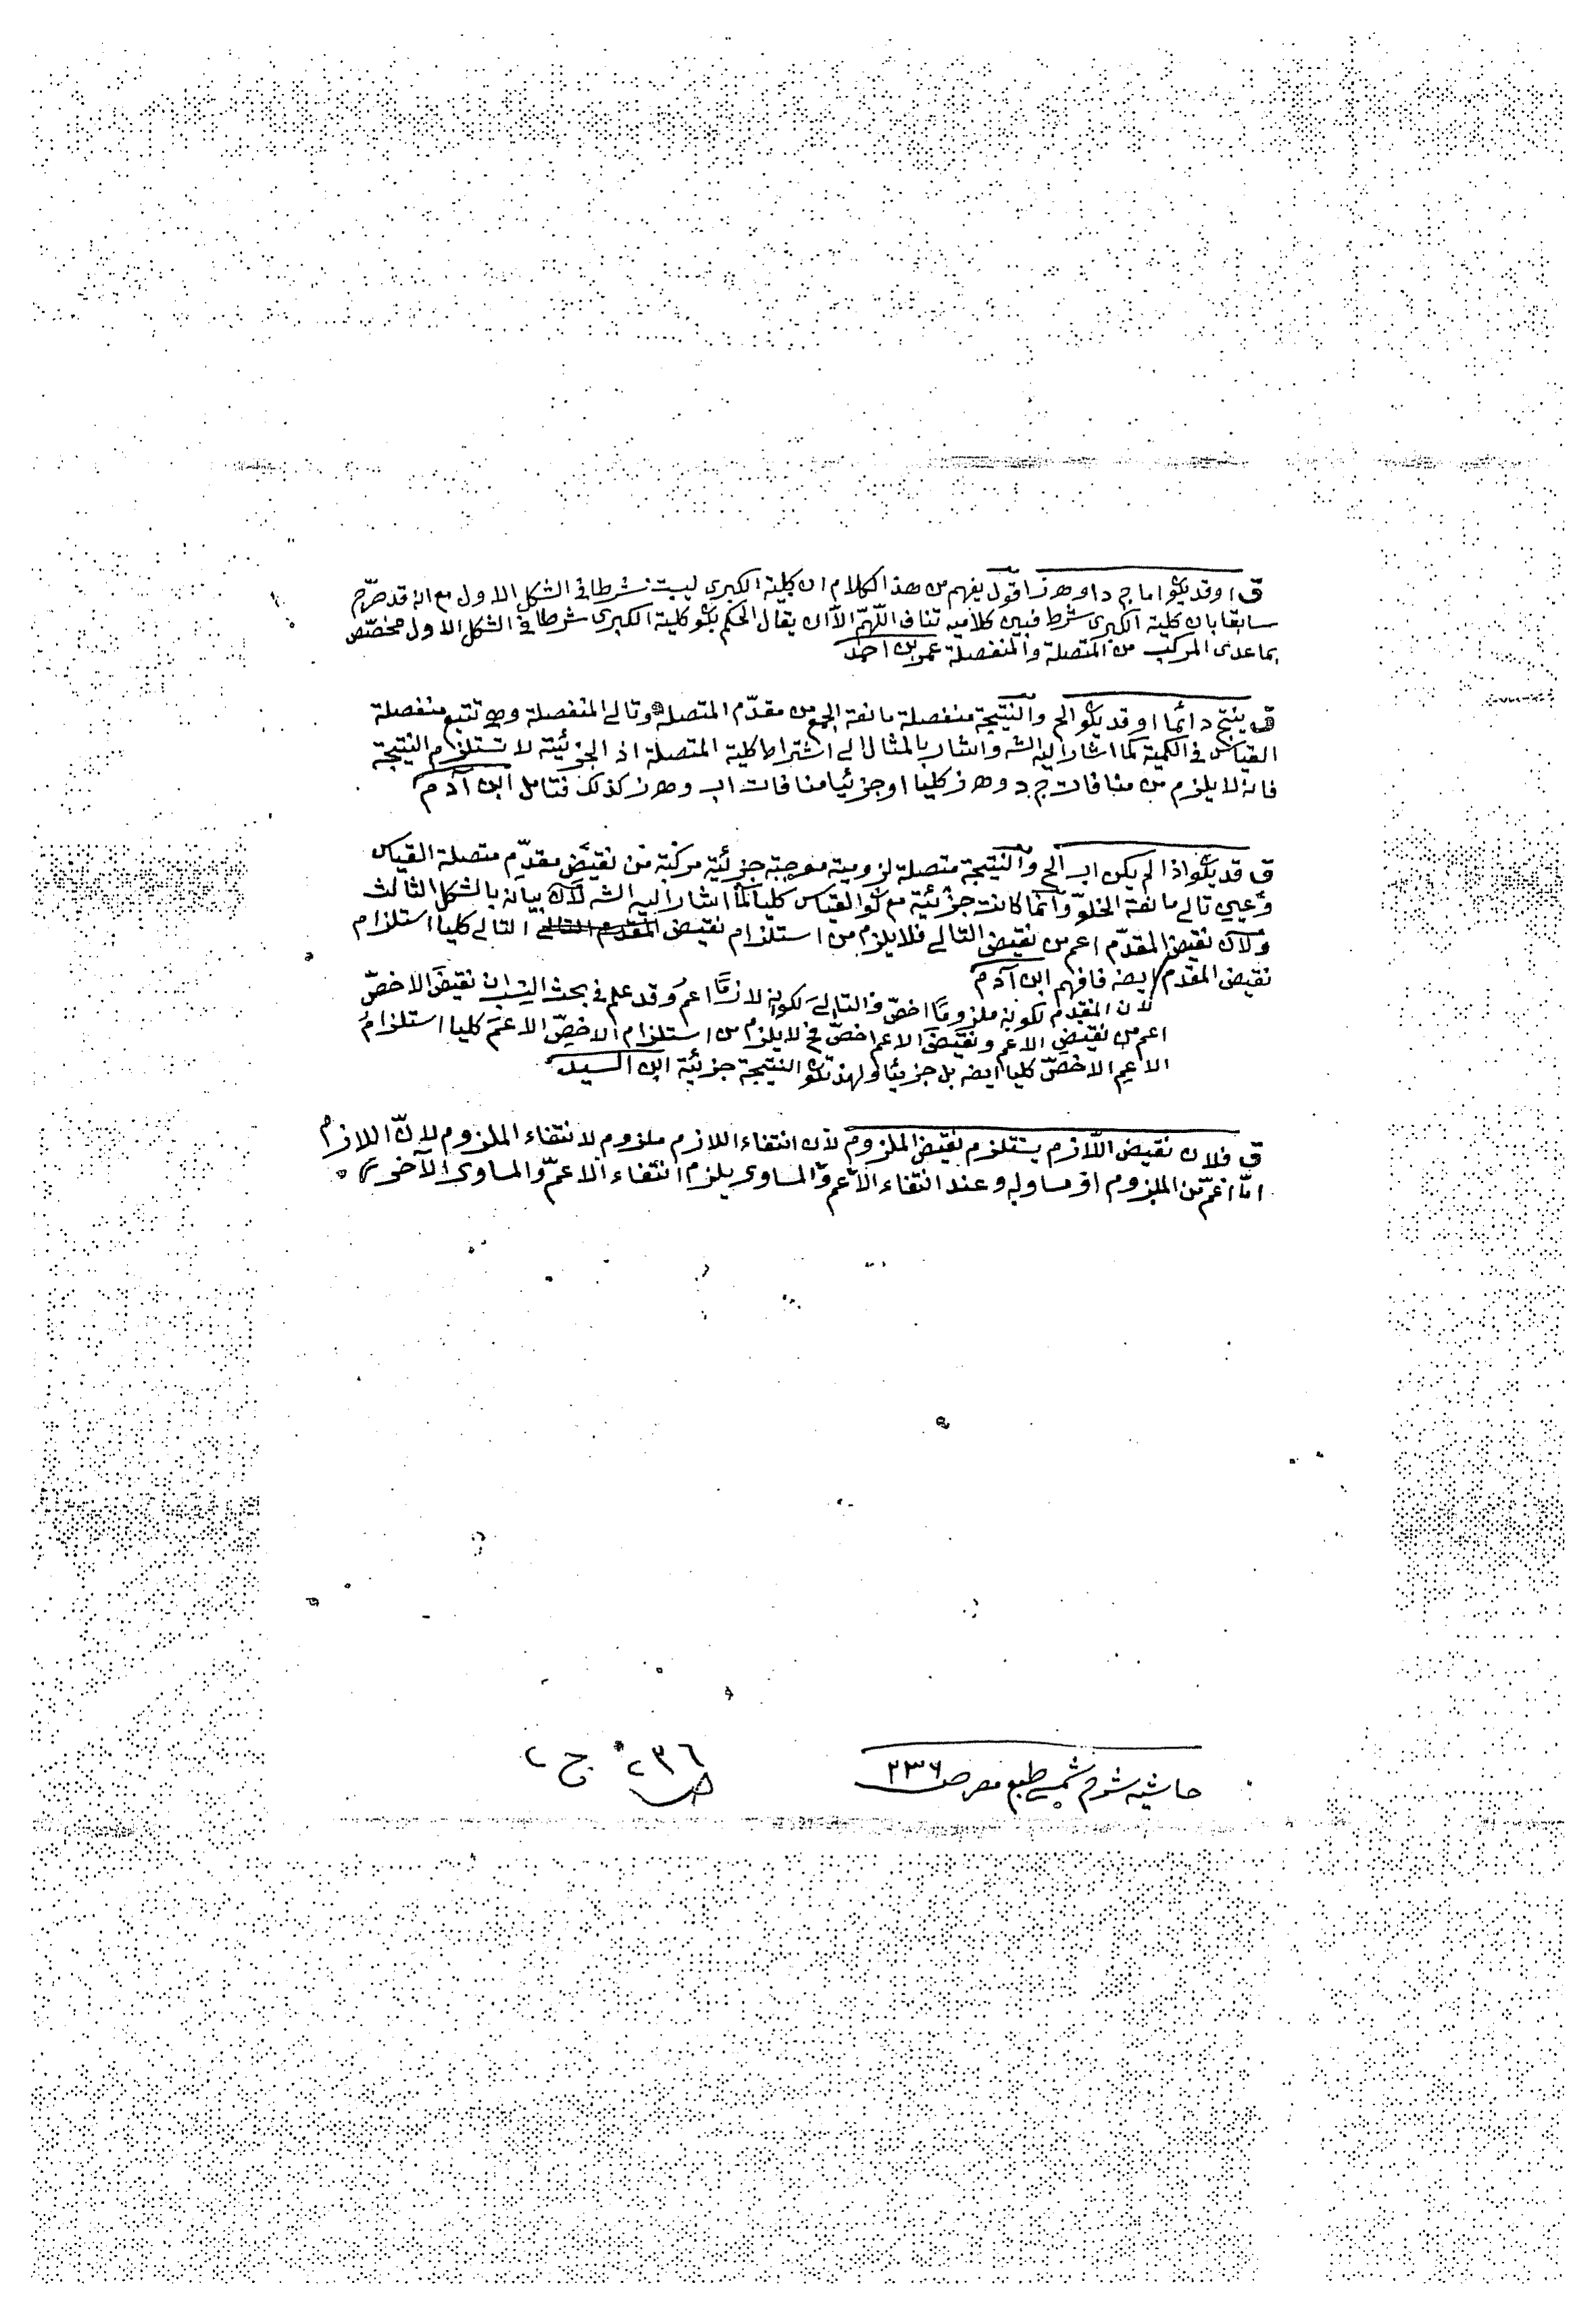 ق اوقد يكو اما ج د او ه ز اقول يفهم من هذا الكلام ان كلية الكبرى ليست شرطا فى الشكل الاول مع انه قد صرّح
سابقا بان كلية الكبرى شرط فبين كلاميه تناف اللّهمّ الّا ان يقال الحكم بكو كلية الكبرى شرطا فى الشكل الاول مخصّص
بما عدى المركب من المتصلة والمنفصلة عمر بن احمد
ق ينتج دائما اوقد يكو الخ والنتيجة منفصلة مانعة الجمع من مقدّم المتصلة وتالى المنفصلة وهى تتبع منفصلة
القياس فى الكمية كما اشار اليه الشه واشار بالمثال الى اشتراط كلية المتصلة اذ الجزئية لا تستلزم النتيجة
فانه لا يلزم من منافات ج د و ه ز كليا او جزئيا منافات اب و ه ز كذلك فتامل ابن آدم
ق قد يكو اذا لم يكن اب الخ والنتيجة متصلة لزومية موجبة جزئية مركبة من نقيض مقدّم متصلة القياس
وعين تالى مانعة الخلوّ وانّما كانت جزئية مع كو القياس كليا لما اشار اليه الشه لان بيانه بالشكل الثالث
ولان نقيض المقدّم اعم من نقيض التالى فلا يلزم من استلزام نقيض التالى كليا استلزام
نقيض المقدم ايضه فافهم ابن آدم
لان المقدم لكونه ملزومًا اخصّ والتالى لكونه لازمًا اعم وقد علم فى بحث النسب ان نقيض الاخصّ
اعم من نقيض الاعم ونقيض الاعم اخصّ فح لا يلزم من استلزام الاخصّ الاعم كليا استلزام
الاعم الاخصّ كليا ايضه بل جزئيا ولهذ تكو النتيجة جزئية ابن السيد
ق فلان نقيض اللّازم يستلزم نقيض الملزوم لان انتفاء اللازم ملزوم لانتفاء الملزوم لانّ اللازم
امّا اعمّ من الملزوم او مساو له وعند انتفاء الاعمّ والمساوى يلزم انتفاء الاعمّ والمساوى الآخر
حاشيه شروح شمسى طبع مصر صـ ٢٣٦
صـ ٢٣٦ ج ٢